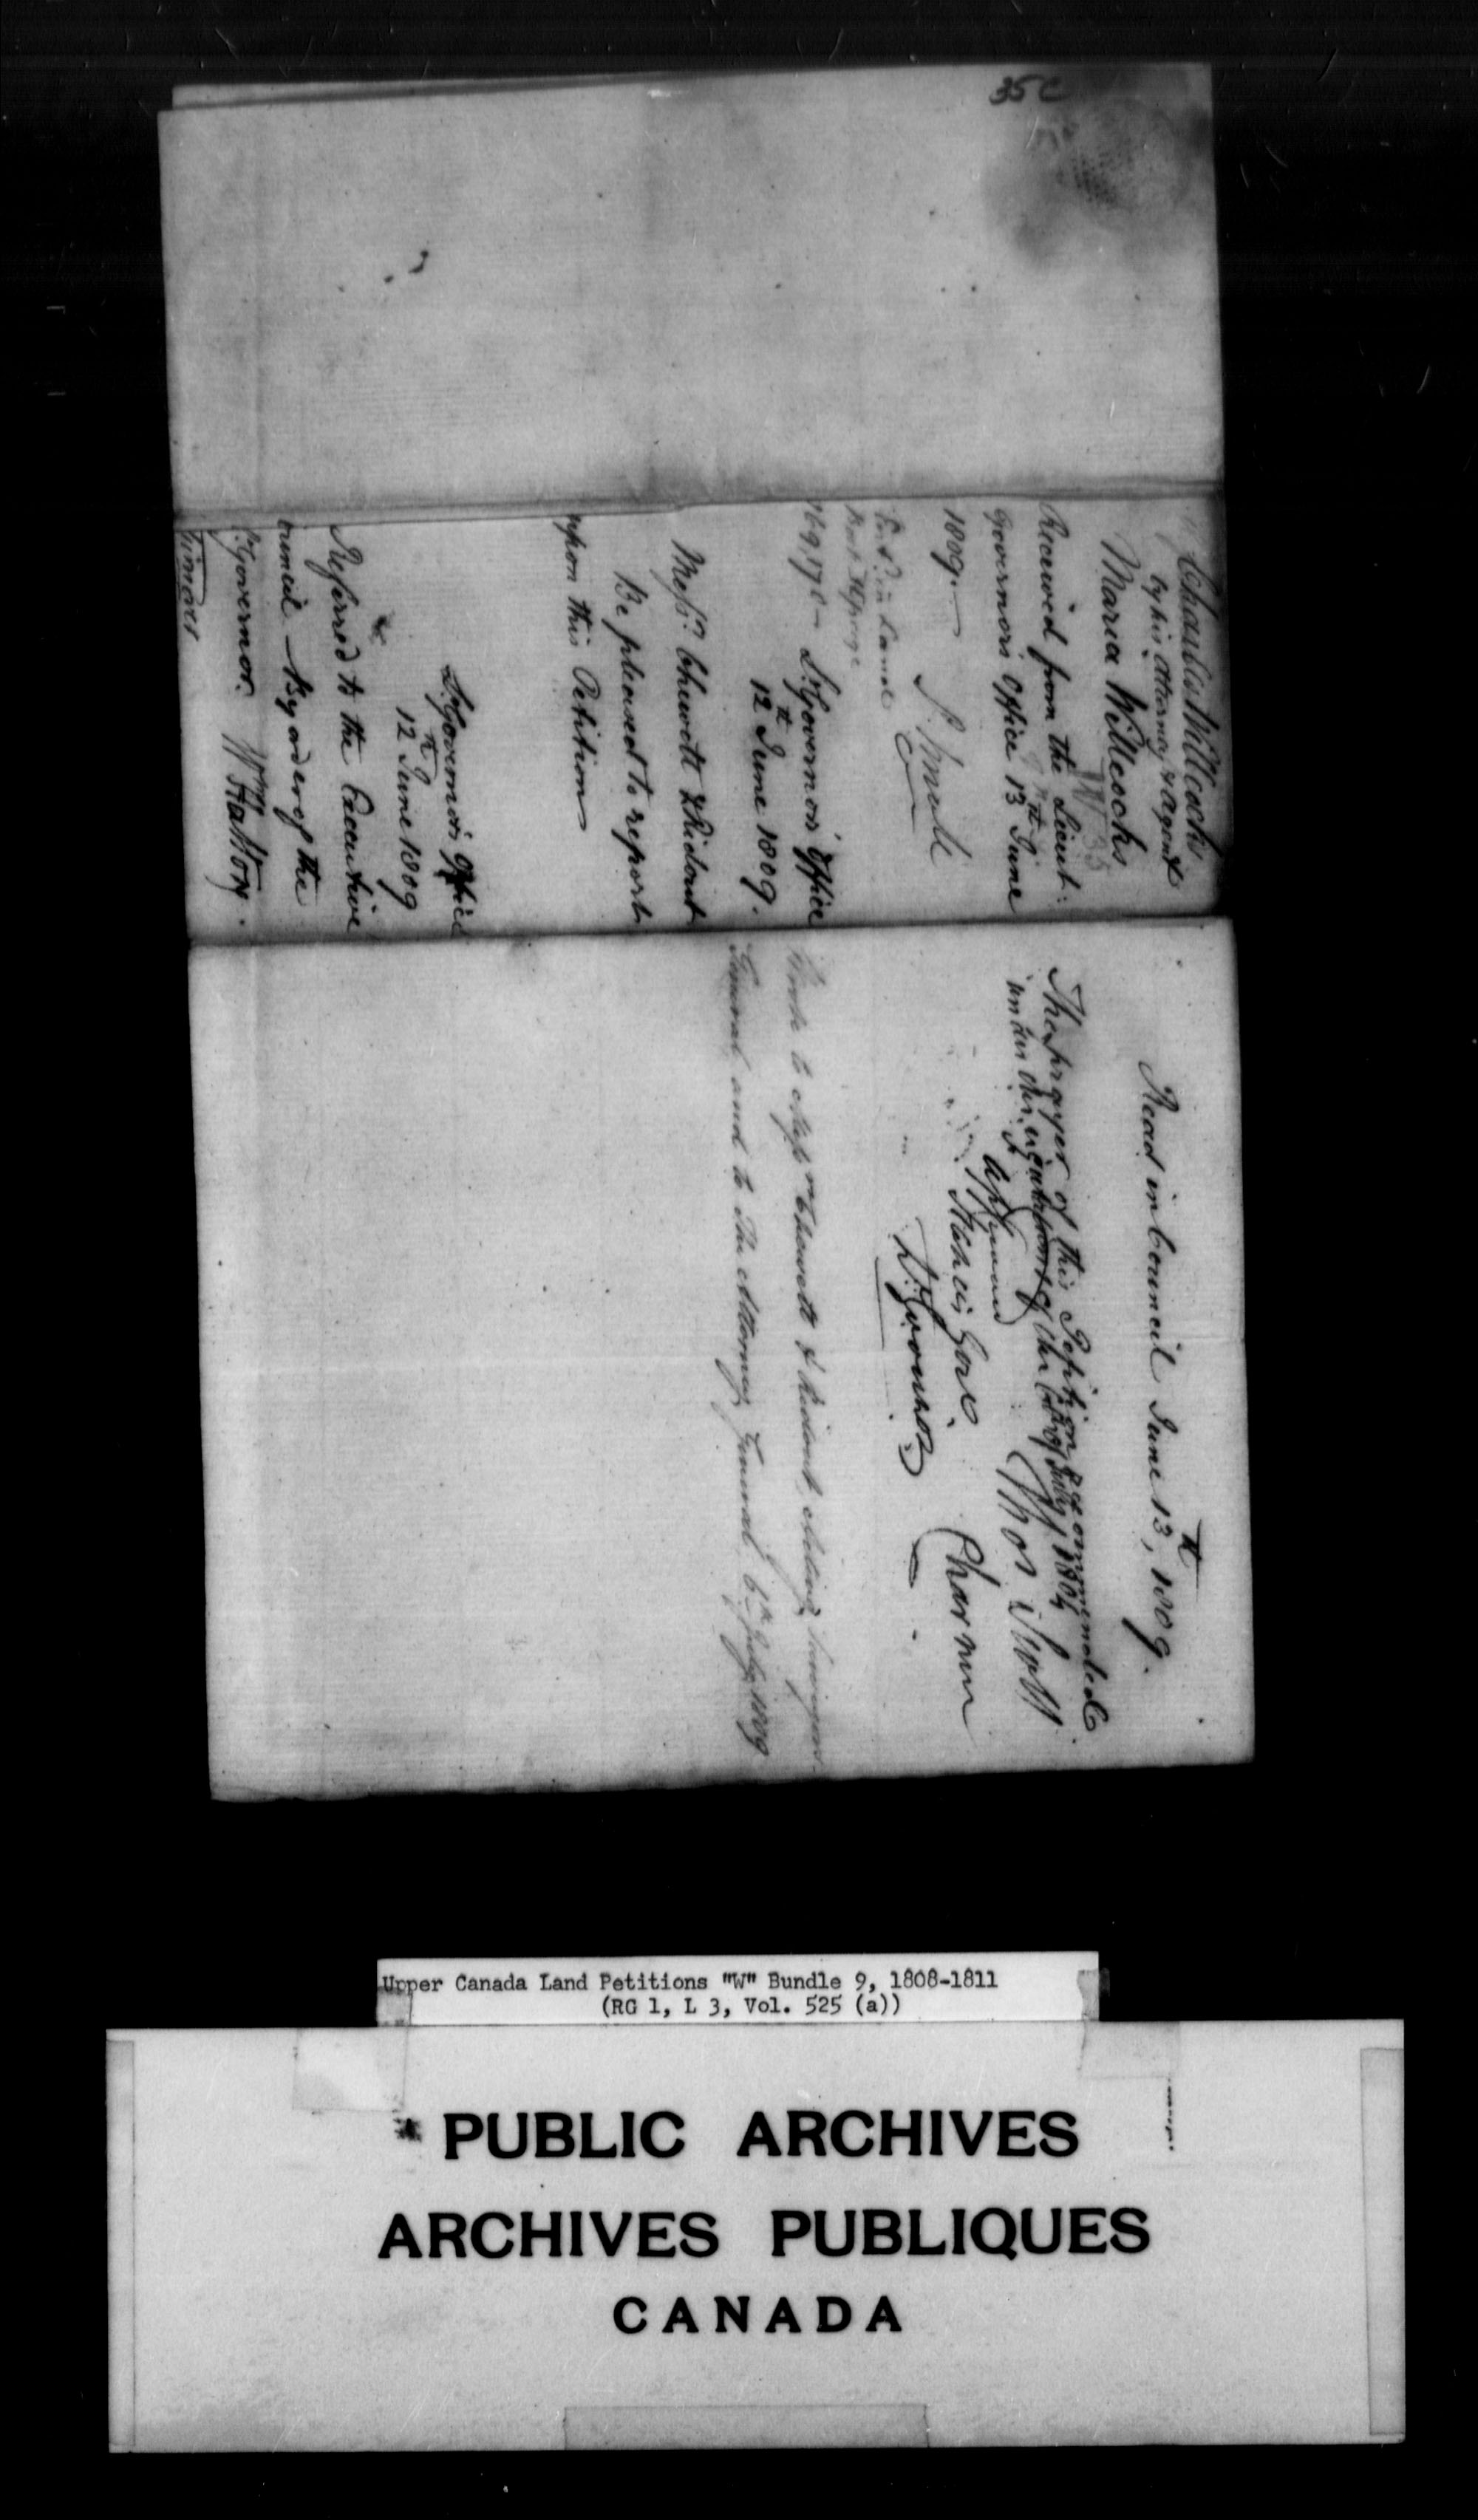 35C
Charles Willcocks
by his Attorney & Agent
Maria Willcocks
W 35
Received from the Lieut:
Governors office 13th June
1809.—
J. Small
169, 170—
Lt. Governors Office
12th June 1809.
Messrs. Chewett & Ridout
Be pleased to report
upon this Petition—
Lt. Governors Office
12th June 1809
Referred to the Executive
Council — By order of the
Lt. Governor.
Wm Halton.
Read in Council June 13th, 1809.
The prayer of this Petition recommended
under the of the of July 1804
Thos Scott
Chairman
Approved
Francis Gore.
Lt. Governor
Wrote to Messrs Chewett & Ridout Acting Surveyor
General and to the Attorney General 6th July 1809
Upper Canada Land Petitions "W" Bundle 9, 1808-1811
(RG 1, L 3, Vol. 525 (a))
PUBLIC ARCHIVES
ARCHIVES PUBLIQUES
CANADA